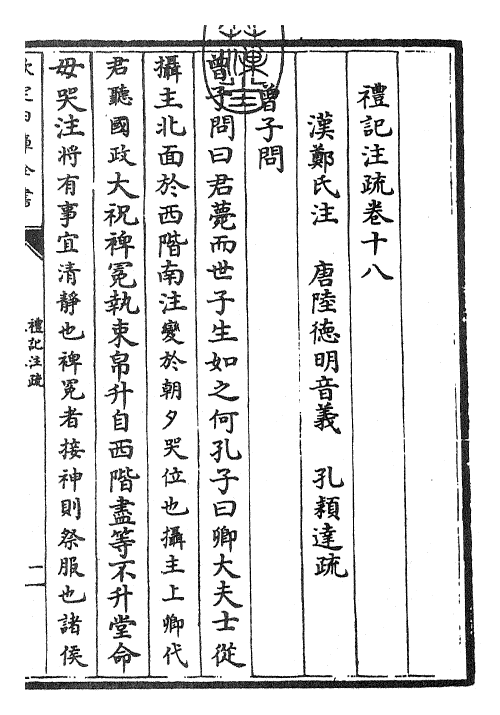 禮記注疏卷十八
漢鄭氏注　唐陸德明音義　孔穎達疏
曾子問
曾子問曰君薨而世子生如之何孔子曰卿大夫士從
攝主北面於西階南注變於朝夕哭位也攝主上卿代
君聽國政大祝裨冕執束帛升自西階盡等不升堂命
毋哭注將有事宜清靜也裨冕者接神則祭服也諸侯
欽定四庫全書
禮記注疏
一